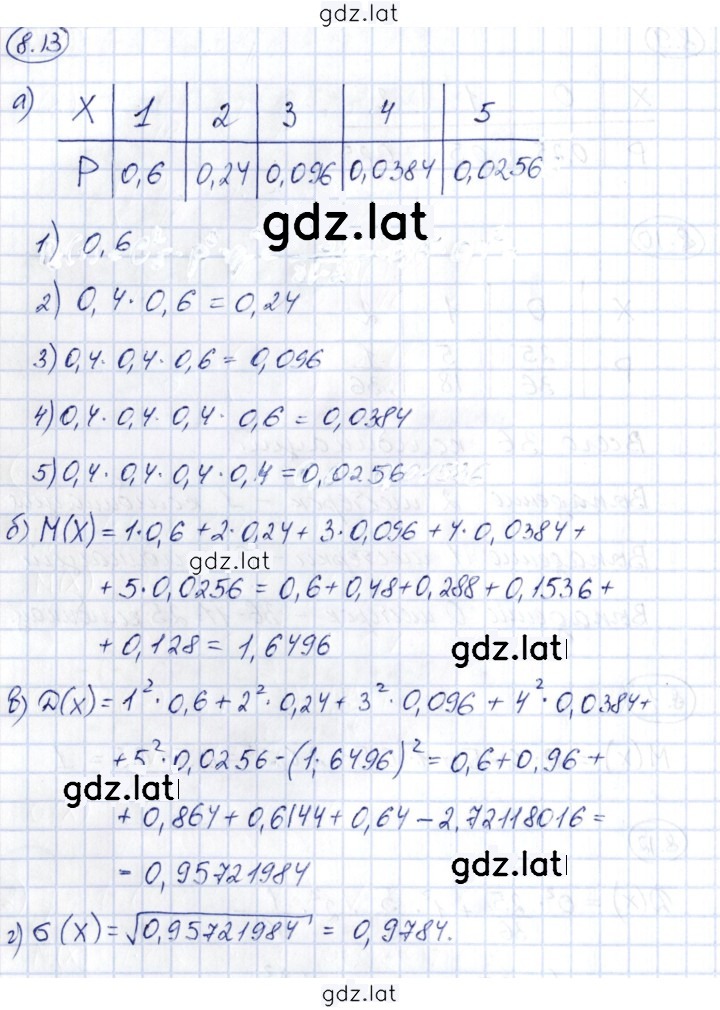 gdz.lat
8.13
а) X 1 2 3 4 5
P 0,6 0,24 0,096 0,0384 0,0256
gdz.lat
1) 0,6
2) 0,4·0,6 = 0,24
3) 0,4·0,4·0,6 = 0,096
4) 0,4·0,4·0,4·0,6 = 0,0384
5) 0,4·0,4·0,4·0,4 = 0,0256
б) M(X) = 1·0,6 + 2·0,24 + 3·0,096 + 4·0,0384 +
gdz.lat
+ 5·0,0256 = 0,6 + 0,48 + 0,288 + 0,1536 +
+ 0,128 = 1,6496
gdz.lat
в) D(X) = 1²·0,6 + 2²·0,24 + 3²·0,096 + 4²·0,0384 +
+ 5²·0,0256 - (1,6496)² = 0,6 + 0,96 +
gdz.lat
+ 0,864 + 0,6144 + 0,64 - 2,72118016 =
= 0,95721984
gdz.lat
г) σ(X) = √0,95721984 = 0,9784.
gdz.lat